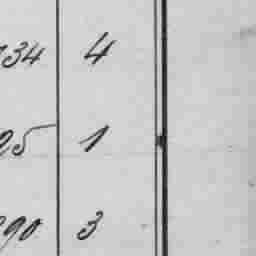 34 4
25 1
90 3